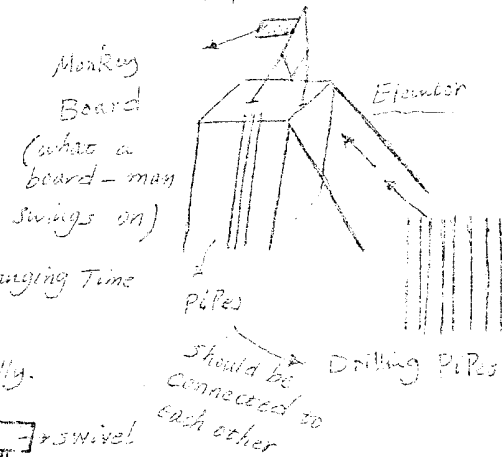 Monkey
Board
(what a
board-man
swings on)
Elevator
anging Time
PiPes
should be
connected to
each other
Drilling PiPes
lly.
swivel